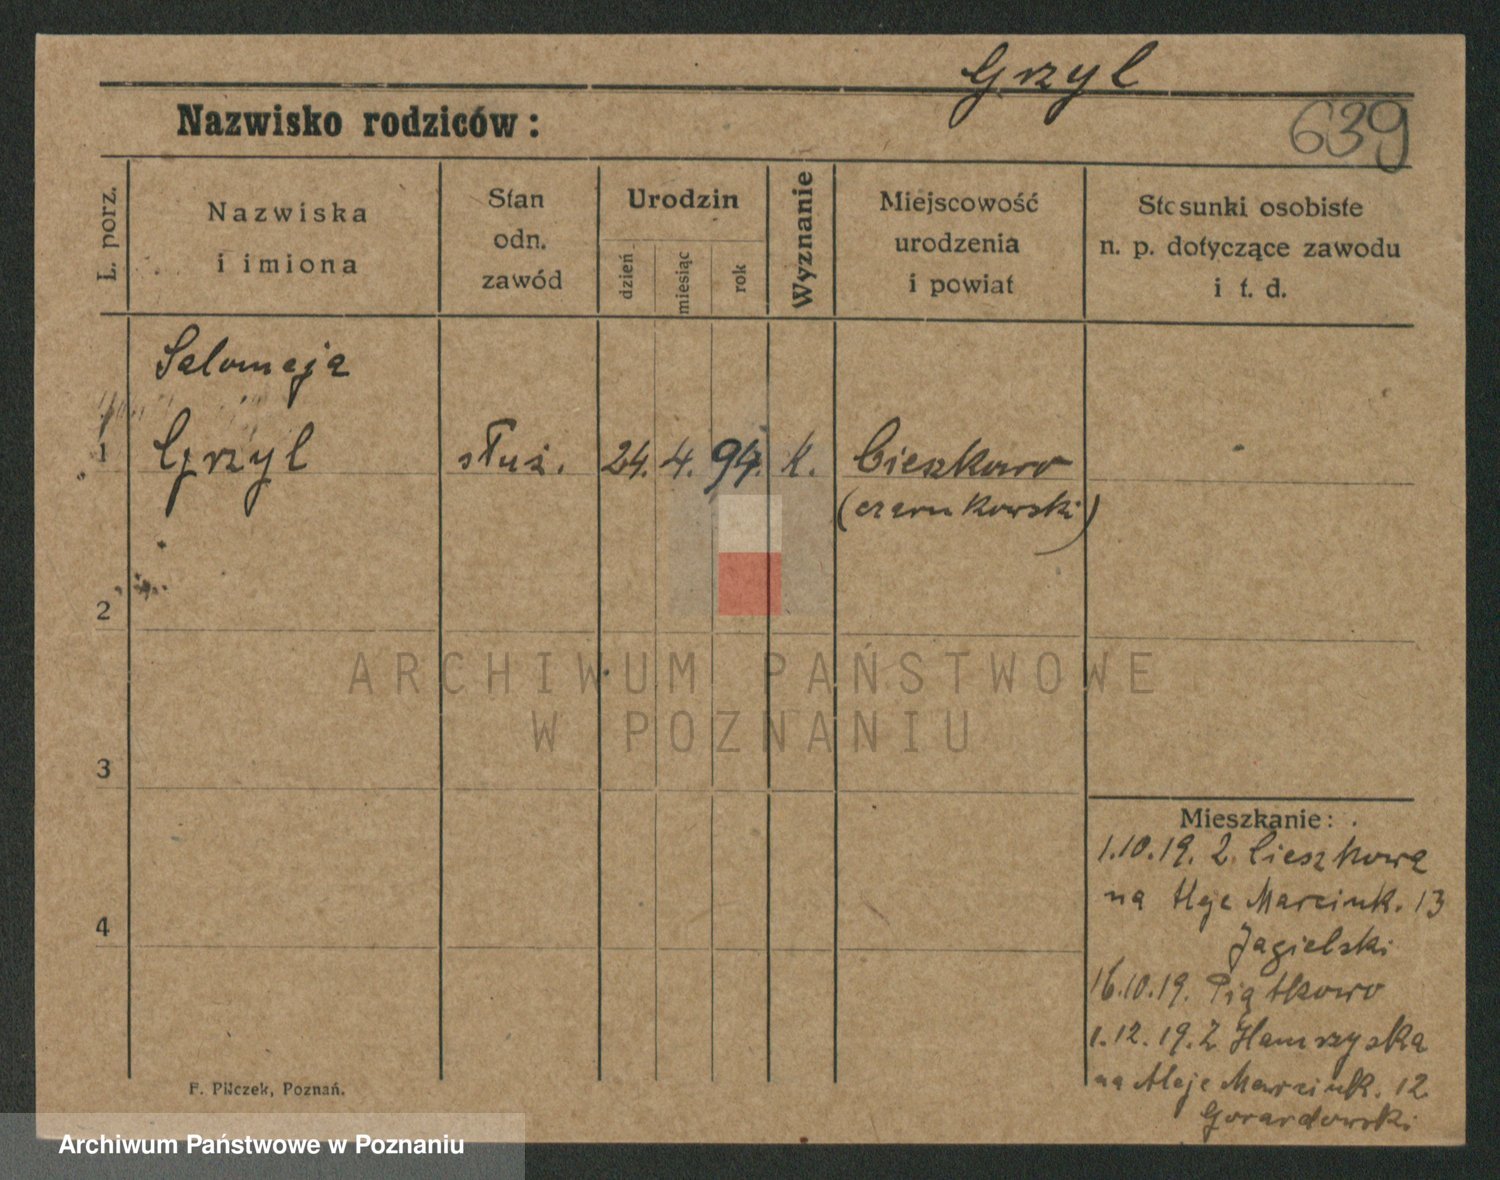 Grzyl
639
Nazwisko rodziców:
L. porz.
Nazwiska
i imiona
Stan
odn.
zawód
Urodzin
dzień
miesiąc
rok
Wyznanie
Miejscowość
urodzenia
i powiat
Stosunki osobiste
n. p. dotyczące zawodu
i t. d.
Salomeja
1 Grzyl służ. 24. 4. 94. k. Cieszkowo
(czarnkowski)
2
3
4
ARCHIWUM PAŃSTWOWE
W POZNANIU
Mieszkanie:
1.10.19. z Cieszkowa
na Aleje Marcink. 13
Jagielski
16.10.19. Piątkowo
1.12.19. z Hamrzyska
na Aleje Marcink. 12
F. Pilczek, Poznań.
Archiwum Państwowe w Poznaniu